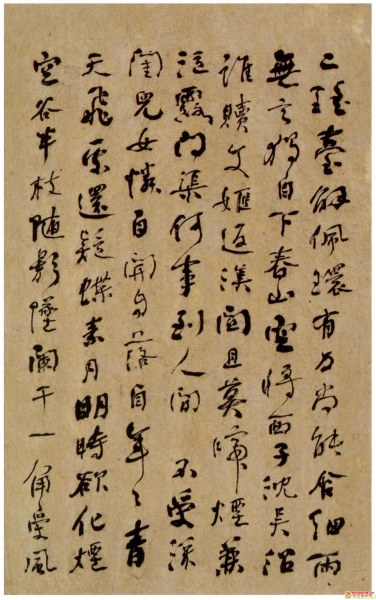 瑤臺解佩環有力尚能含細雨
無言獨自下春山空將西子沈吳沼
誰贖文姬返漢關且莫啼煙兼
泣露問渠何事到人間 不受深
閨兒女憐自開自落自年〻青
天飛處還疑蝶素月明時欲化煙
空谷半枝隨影墮闌干一角受風